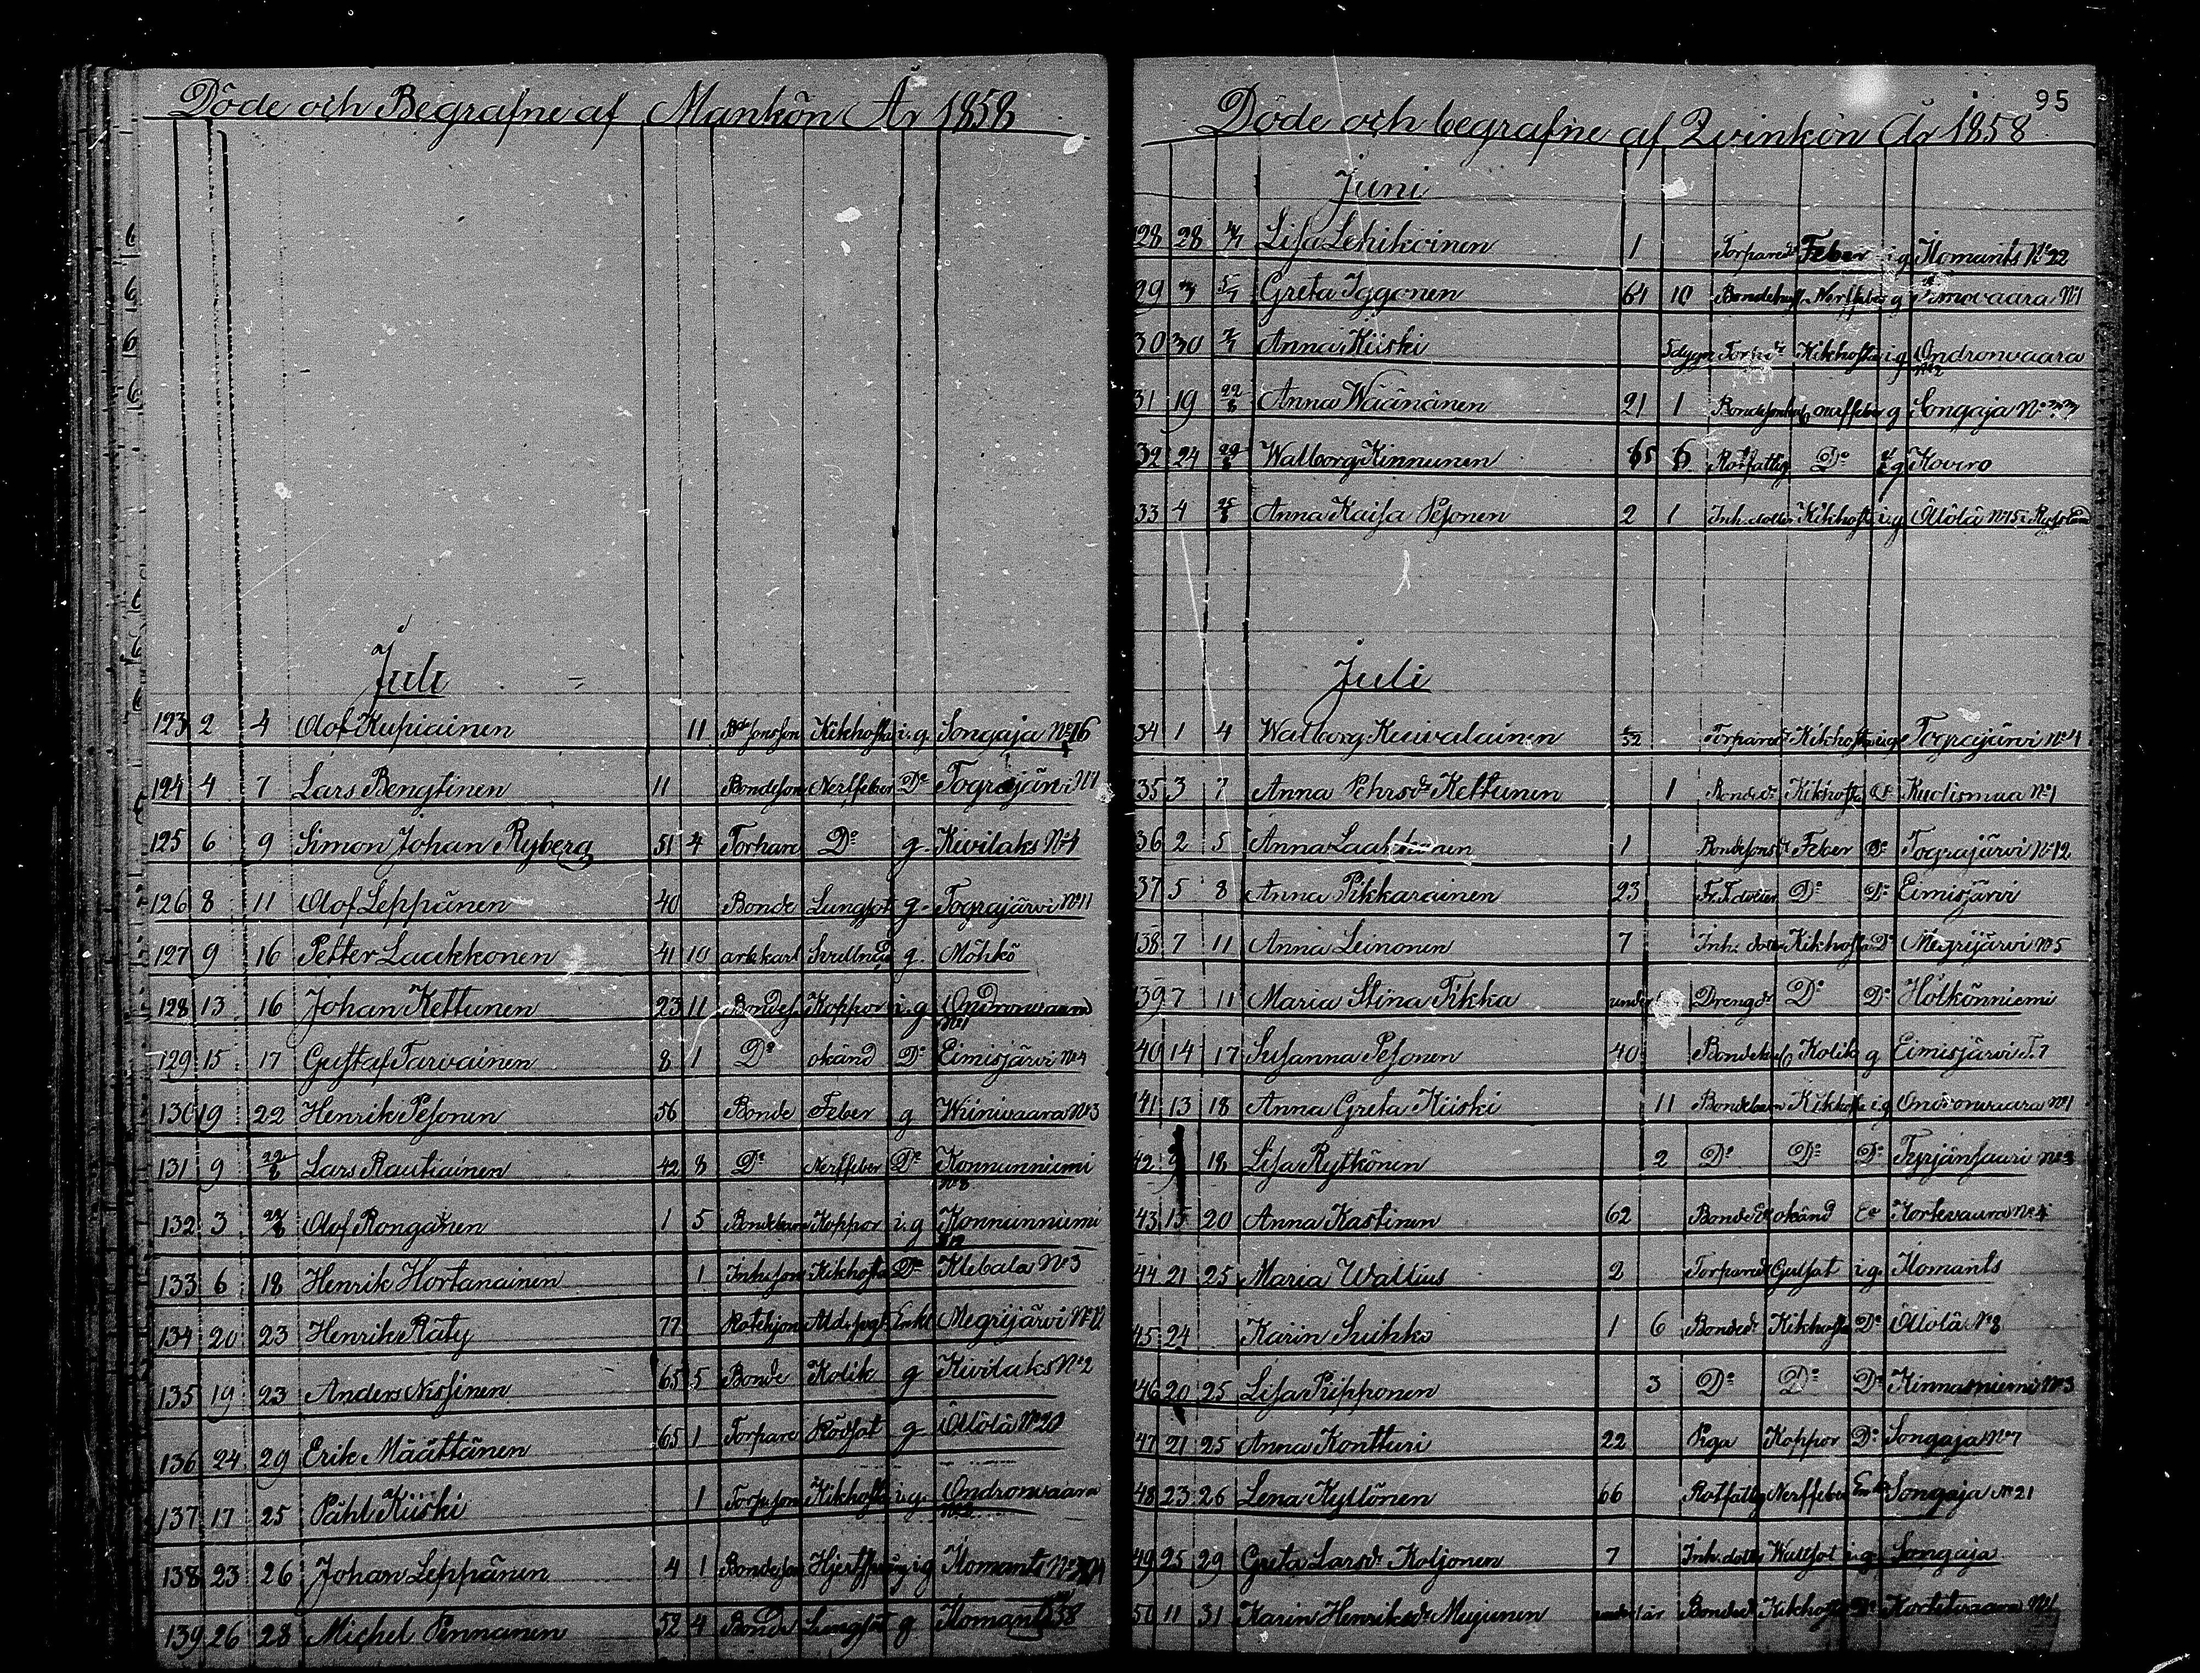 Döde och Begrafne af Mankön År 1858
Juli
123 2 4 Olof Kupiainen 11 Kikhosta i.g. Songaja No 16
124 4 7 Lars Bengtinen 11 Bondeson Nerffeber Do Tograjärvi
125 6 9 Simon Johan Ryberg 51 4 Do g. Kivilaks No 4
126 8 11 Olof Leppänen 40 Bonde Lungsot g. Tograjärvi No 11
127 9 16 Petter Laakkonen 41 10 g. Möhkö
128 13 16 Johan Kettunen 23 11 Bondes. Koppor i.g. Ondronvaara
No 1
129 15 17 Gustaf Tarvainen 8 1 Do okänd Do Eimisjärvi No 4
130 19 22 Henrik Pesonen 56 Bonde Feber g Wiinivaara No 3
131 9 22/8 Lars Rautiainen 42 8 Do Nerffeber Do Konnunniemi
No 8
132 3 Olof Ronganen 1 5 Koppor i.g Konnunniemi
133 6 18 Henrik Hortanainen 1 Inhyson Kikhosta Do Klebala No 3
134 20 23 Henrik Räty 77 Enkl Megrijärvi
135 19 23 Anders Nissinen 65 5 Bonde Kolik g Kivilaks No 2
136 24 29 Erik Määttänen 65 1 Torpare Rödsot g Öllölä No 20
137 17 25 Påhl Kiiski 1 Torpson Kikhosta i.g. Ondronvaara
No 2
138 23 26 Johan Leppänen 4 1 Bondeson i.g Ilomants
139 26 28 Michel Pennanen 52 4 Bonde Lungsot g Ilomants 38
95
Döde och begrafne af Qvinkön År 1858
Juni
28 28 4/7 Lisa Lehikoinen 1 Torpared. Feber i g Ilomants No 22
29 5/7 Greta Iggonen 64 10 Bondehust. Nerffeber g No 1
30 30 Anna Kiiski 5 dygn Torpd. Kikhosta i g Ondronvaara
No 2
31 19 22/8 Anna Wäänänen 21 1 nerffeber g Songaja No 33
32 24 Walborg Kinnunen 65 6 Rotfattig Do g Kovero
33 4 Anna Kaisa Pesonen 2 1 Inh. dotter Kikhosta i.g Öllölä No 15 i Ryssland
Juli
34 1 4 Walborg Kuivalainen Torpared. Kikhosta i.g. Tograjärvi No 4
35 3 7 Anna Pehrsdr Kettunen 1 Bonded. Kikhosta Do Kuolismaa No 1
36 2 5 Anna 1 Bondesonsdr Feber Do Tograjärvi No 12
37 5 8 Anna Pikkarainen 23 Do Do Eimisjärvi
138 7 11 Anna Leinonen 7 Inh. dotter Kikhosta Do Megrijärvi No 5
139 7 11 Maria Stina Tikka under Drengdr Do Do Hölkönniemi
40 14 17 Susanna Pesonen 40 Kolik g Eimisjärvi
141 13 18 Anna Greta Kiiski 11 Bondebarn Kikhosta i.g Ondronvaara No 1
42 9 18 Lisa Rytkönen 2 Do Do Do
43 15 20 Anna Kastinen 62 okänd Kortevaara
44 21 25 Maria Wallius 2 Torpared. Gulsot i.g. Ilomants
45 24 Karin Suihko 1 6 Bonded. Kikhosta Do Öllölä No 8
146 20 25 Lisa Piipponen 3 Do Do Do Kinnasniemi No 3
47 21 25 Anna Kontturi 22 Piga Koppor Do Songaja No 7
48 23 26 Lena Kyllönen 66 Rotfattig Nerffeber Songaja No 21
49 25 29 Greta Larsdr Koljonen 7 Inh. dotter i.g. Songaja
50 11 31 Karin Henriksdr Mujunen under 1 år Bonded. Kikhosta Do